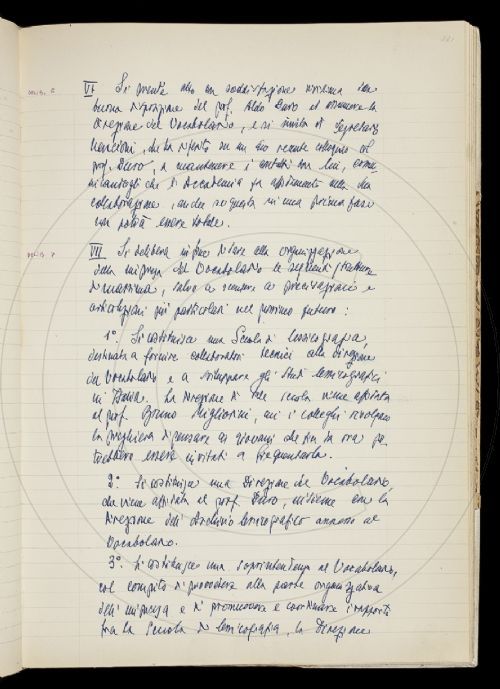 DELIB. 6
VI Si prende atto con soddisfazione unanime della
buona disposizione del prof. Aldo Duro ad assumere la
direzione del Vocabolario, e si invita il Segretario
Nencioni, che ha riferito su un suo recente colloquio col
prof. Duro, a mantenere i contatti con lui,
che l'Accademia fa affidamento nella sua
collaborazione, anche se questa in una prima fase
non potrà essere totale.
DELIB. 7
VII Si delibera infine di dare alla organizzazione
della impresa del Vocabolario le seguenti strutture
di massima, salvo a venire a precisazioni e
articolazioni più particolari nel prossimo futuro:
1° Si costituisce una Scuola di lessicografia,
destinata a fornire collaboratori tecnici alla Direzione
del Vocabolario e a sviluppare gli studi lessicografici
in Italia. La direzione di tale scuola viene affidata
al prof. Bruno Migliorini, cui i colleghi rivolgono
la preghiera di pensare ai giovani che fin da ora po-
trebbero essere invitati a frequentarla.
2° Si costituisce una Direzione del Vocabolario,
che viene affidata al prof. Duro, insieme con la
direzione dell'Archivio lessicografico annesso al
Vocabolario.
3° Si costituisce una soprintendenza al Vocabolario,
col compito di provvedere alla parte organizzativa
dell'impresa e di promuovere e coordinare i rapporti
fra la Scuola di lessicografia, la Direzione